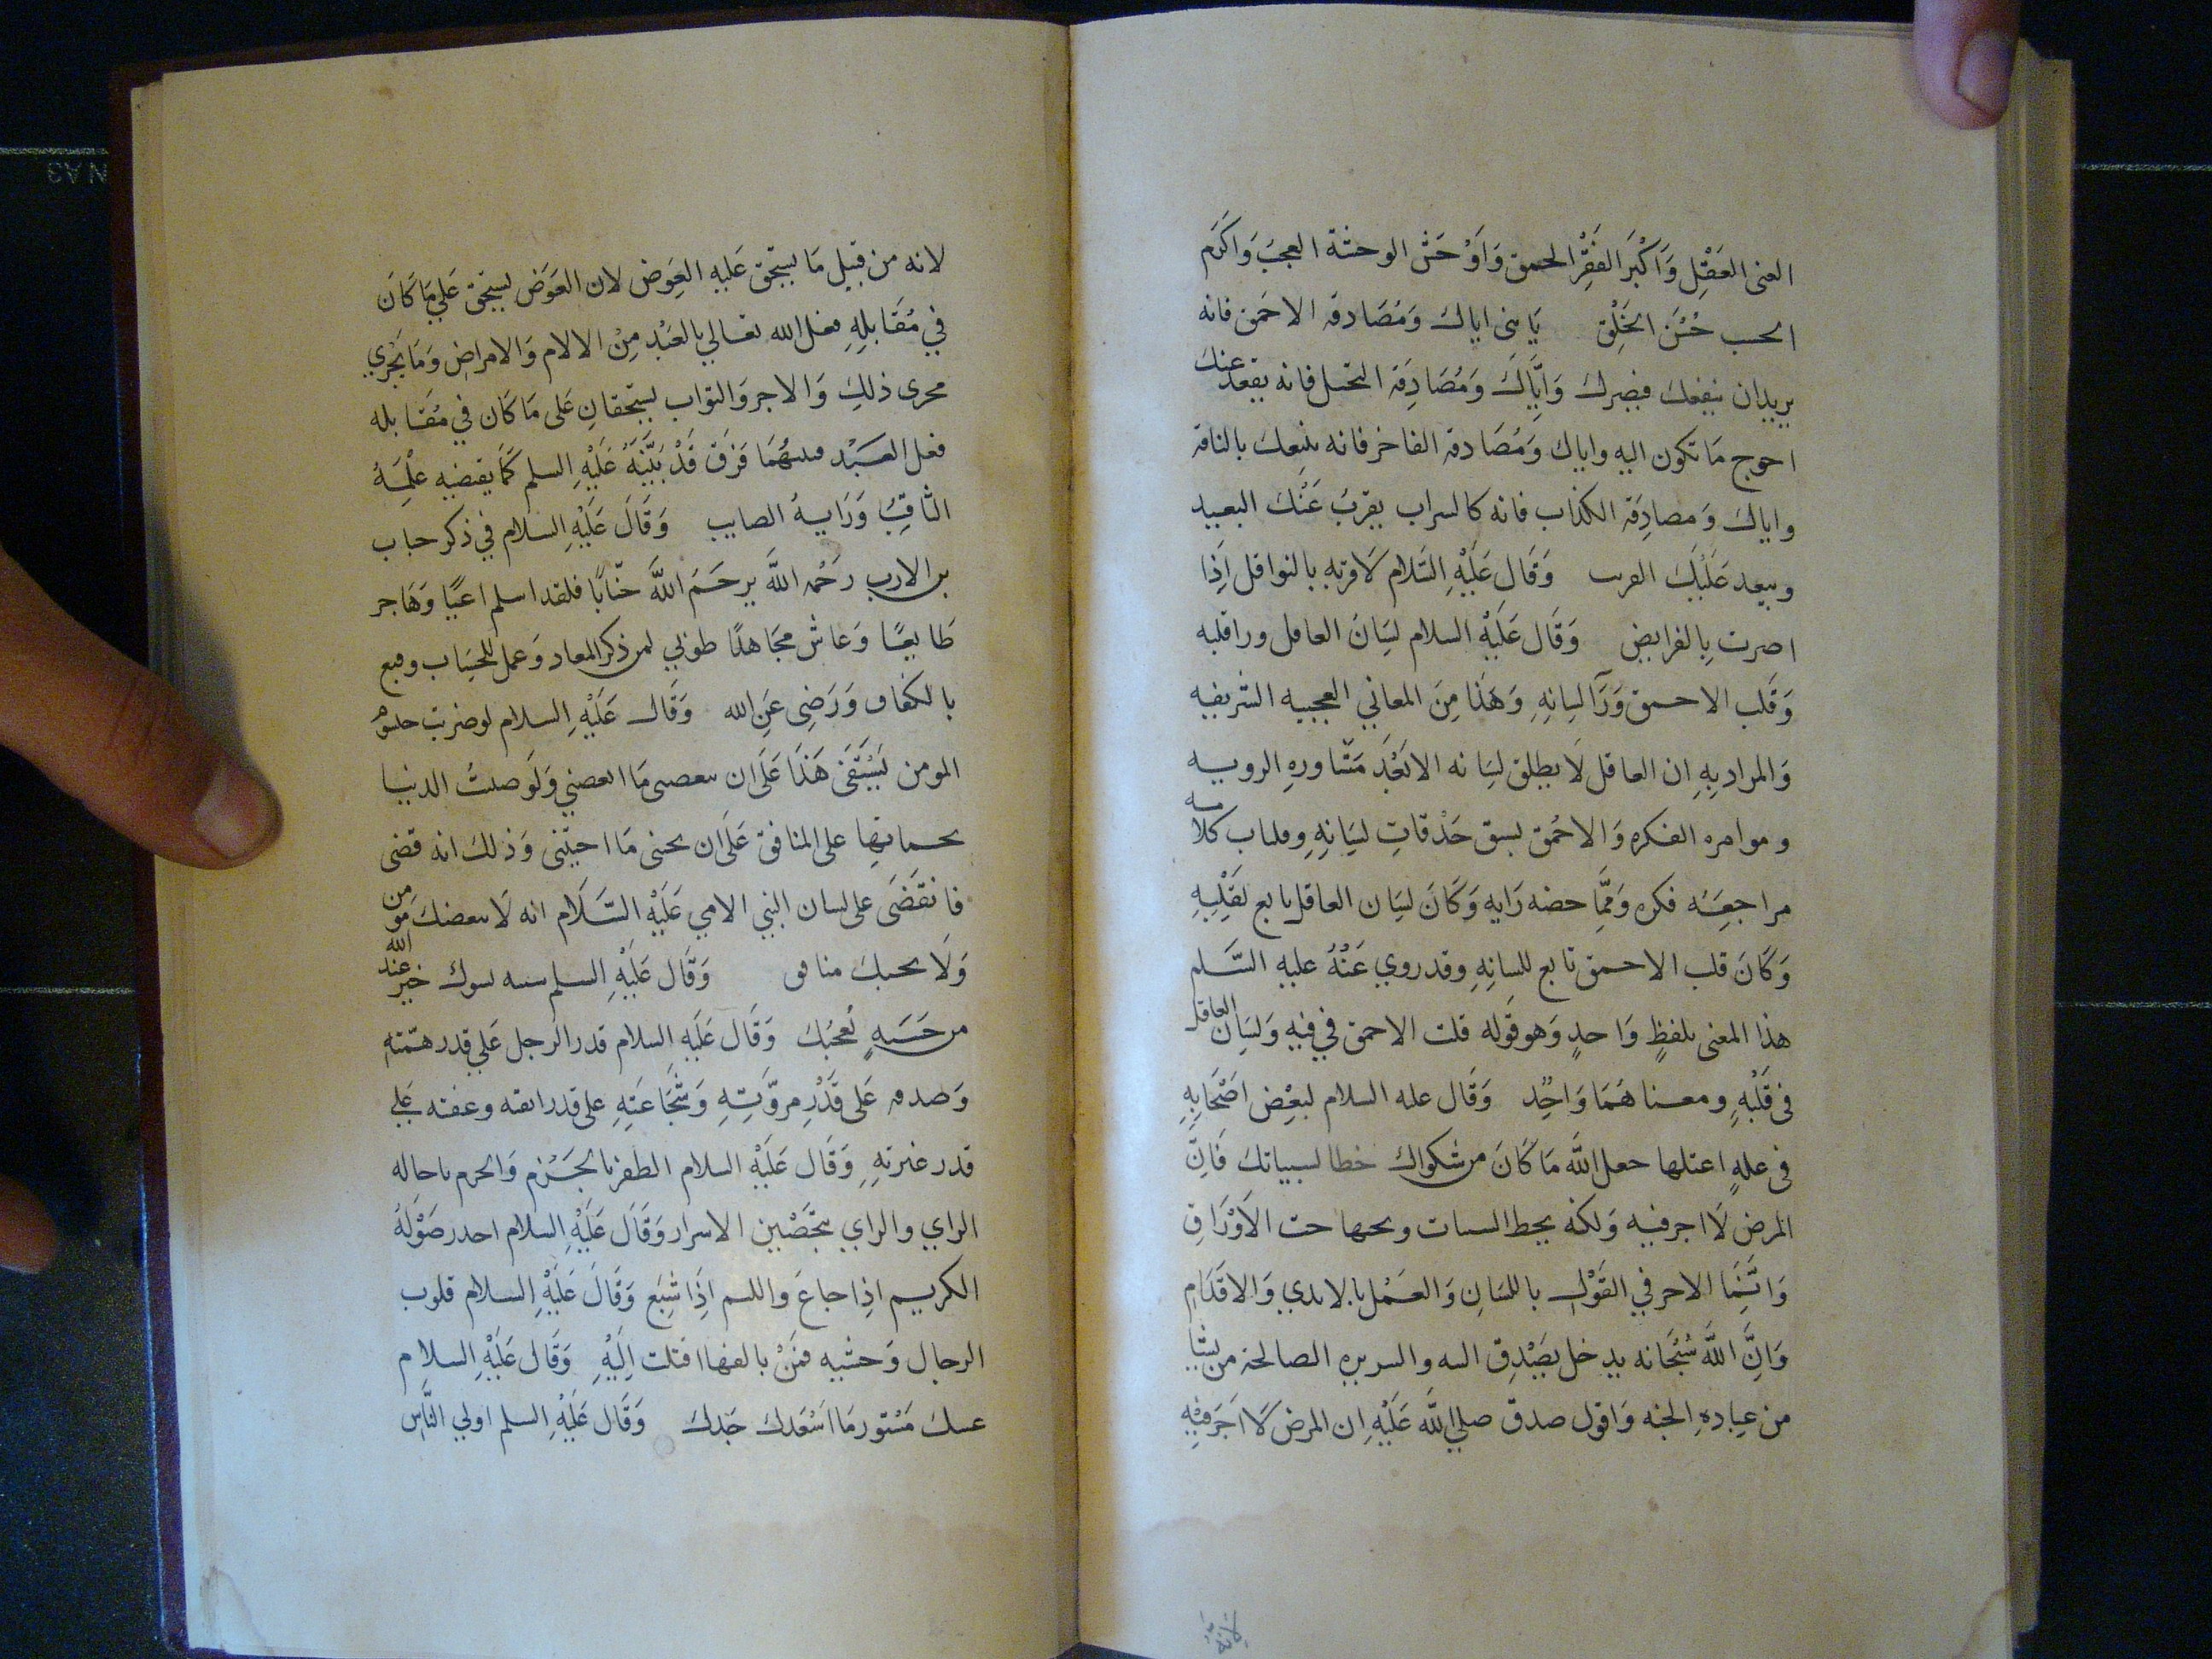 الغنى العَقْل وَاَكْبَر الفَقْر الحمق وَاَوْحَش الوحشة العجبَ وَاكَرم
الحسب حُسْن الخَلْق يَا بنى اياك وَمُصَادقه الاحمَق فانه
يريد ان ينفعك فيضرك وَاِيَّاكَ وَمُصَادِقَة البخيل فانه يقعد عنك
احوج مَا تكون اليه واياك وَمُصَادقه الفاخر فانه يبيعك بالتافه
واياك وَمصادِقَه الكذاب فانه كالسراب يقربُ عَنْكَ البعيد
ويبعد عَلَيْكَ القريب وَقَال عَلَيْهِ السَّلام لَا قربة بالنوافل اِذَا
اضرت بِالفرايض وَقَال عَلَيْهِ السلام لسَانُ العاقل ورا قلبه
وَقَلب الاحمق وَرَآ لسَانِهِ وَهَذا مِنَ المعاني العجيبه الشريفه
وَالمراد بِهِ ان العاقل لَا يطلق لسَانه الا بَعْدَ مشَاوره الرويه
وموامره الفكره وَالاحْمَق يسبق حَذْقاتِ لسَانِهِ وفلتاب كلامه
مراجعَه فكره وَمماحضه رَايه وَكَانَ لسَان العاقل تابع لقَلْبِهِ
وَكَانَ قلب الاحمق تابع للسانِهِ وقد روي عَنْهُ عليه السَّلم
هذا المعنى بلفظٍ وَاحدٍ وَهو قَوله قلت الاحمق في فيه وَلسَان العاقل
فى قَلْبِهِ ومعناهُمَا وَاحِد وَقَال عله السلام لبَعْض اصْحَابِهِ
فى علهٍ اعتلها جعل اللّه مَا كَانَ من شكواك حطا لسيياتك فَاِنّ
المرض لَا اجر فيه وَلكنه يحط السيات ويحتها حت الاَوْرَاق
وَاِنَّمَا الاجر في القَوْل باللسَانِ وَالعَمْل بالايدي وَالاقَدَام
وَاِنَّ اللّه سُبْحَانه يدخل بصَدْقِ النيه والسريره الصالحة من يشآ
من عبادهِ الجنه وَاقول صدق صلي اللّه عَلَيْهِ ان المرض لَا اَجَر فيْهِ
لانه من
لانه من قبيل مَا يستحق عَليه العوَض لان العَوَض يستحق عَلي مَا كَانَ
في مُقَابلهِ فعل الله تعالي بالعَبْد مِنْ الالام وَالامراض وَمَا يَجْري
مجرى ذلكِ وَالاجر وَالثواب يستحقانِ عَلى مَا كَان في مُقَابله
فعل العَبْد فبينهُمَا فَرَق قَدْ بَيَّنَهُ عَلَيْهِ السلم كَمَا يقتضيه علْمِهُ
الثاقِبُ وَرَايهُ الصايب وَقَالَ عَلَيْهِ السلام في ذكر خباب
بن الارت رَحْمه اللّه يرحَمَ اللّه خبّابًا فلقد اسلم راغبًا وَهَاجر
طَايعًا وَعَاش مجَاهدًا طوبي لمن ذكر المعاد وَعمل للحسَاب وقنع
بالكفاف وَرَضِى عَنِ الله وَقَال عَلَيْهِ السلام لو ضربت خيشوم
المومن بسَيْفى هَذَا عَلَى ان يبغضنى مَا ابغضني وَلَو صببتُ الدنيا
بجماتها على المنافق عَلَى ان يحبنى مَا احبّنى وَذلك انه قضى
فانقَضَى على لسان النبي الامي عَلَيْهِ السَّلَام انه لَا يبغضك مومن
وَلَا يحبك منافق وَقَال عَلَيْهِ السلم سيه تسوك خير عند الله
من حَسَنهٍ تُعجبُك وَقَال عَلَيْهِ السلام قدر الرجل عَلي قدر همّته
وَصدقه عَلى قَدْر مروّتِهِ وَشَجَاعَتِهِ على قدر انفته وعفته عَلي
قدر غيرتِهِ وَقَال عَلَيْهِ السلام الظفر بالحَزْم وَالحزم باجاله
الراي والراي بتحْصِين الاسرار وَقَال عَلَيْهِ السلام احذر صَوْلَهُ
الكريم اذِا جاعَ واللىم اِذَا شبع وَقَالَ عَلَيْهِ السلام قلوب
الرجال وَحشيه فمَنْ تالفها اقبلت اِلَيْهِ وَقَال عَلَيْهِ السلام
عيبك مَسْتور مَا اسْعَدك جَدك وَقَال عَلَيْهِ السلم اولي النَّاسِ